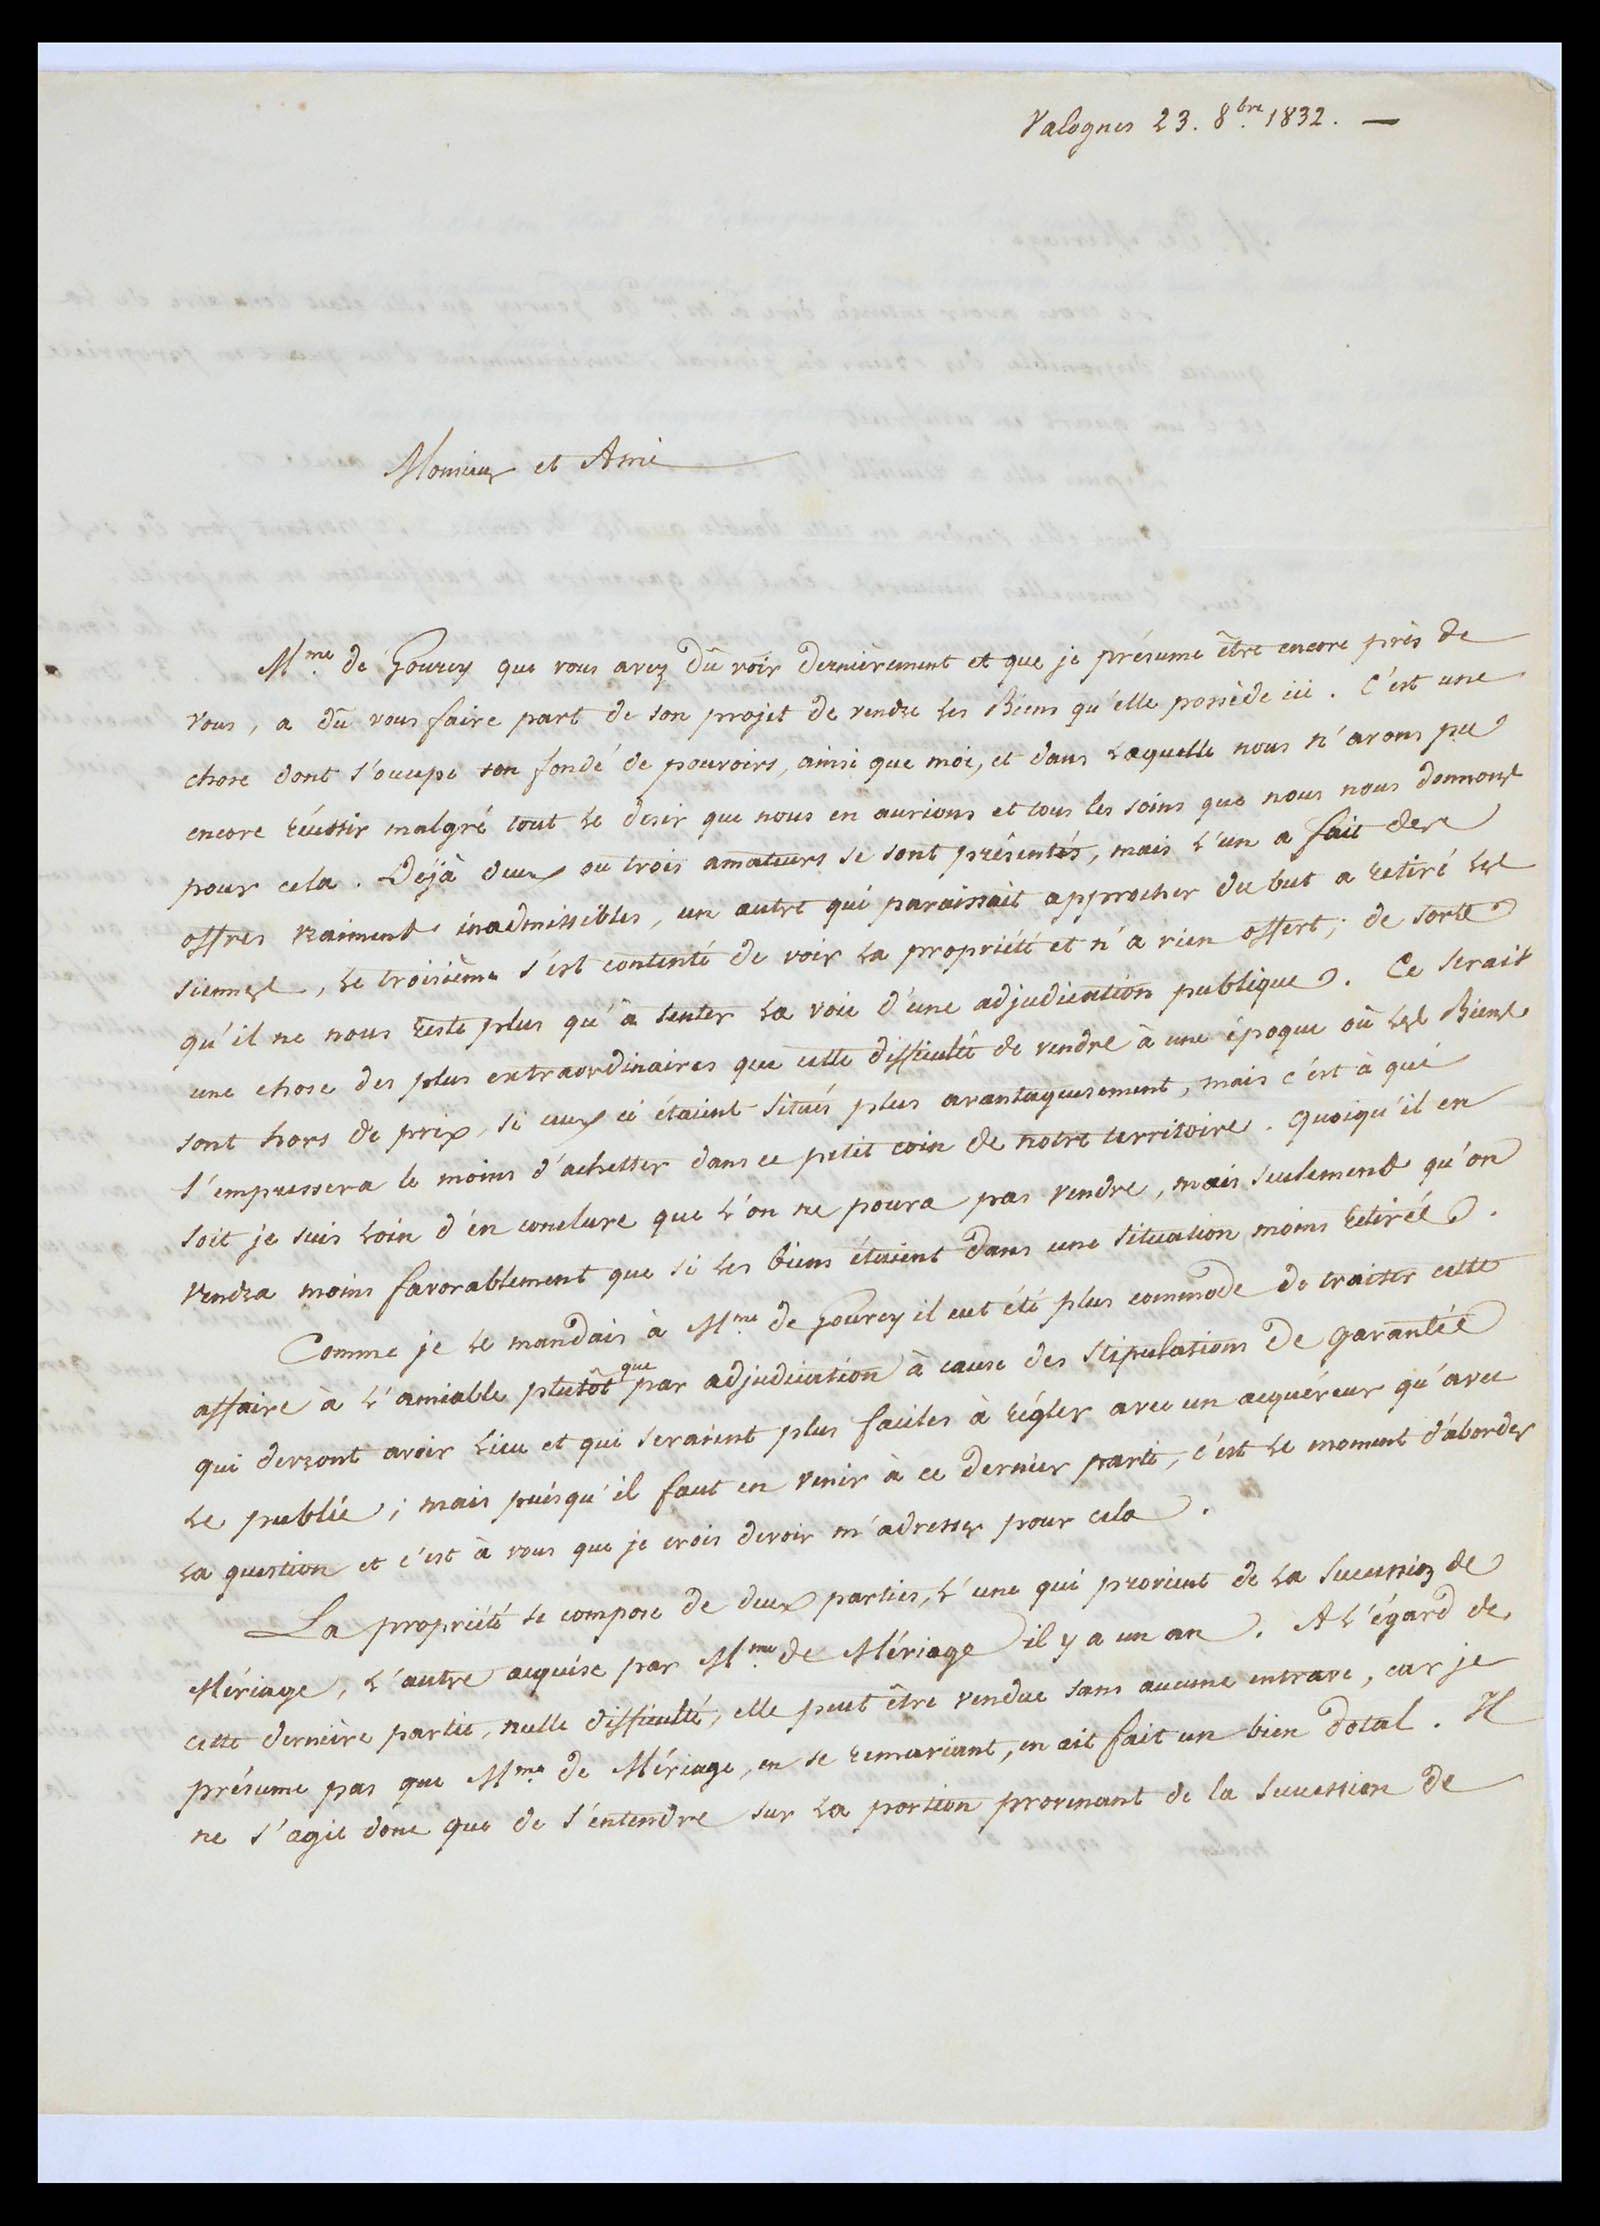 Valognes 23. 8bre. 1832. —
Monsieur et Ami
Mme. de Gourcy que vous avez dû voir dernièrement et que je présume être encore près de
vous, a dû vous faire part de son projet de vendre les Biens qu'elle possède ici. C'est une
chose dont s'occupe son fondé de pouvoirs, ainsi que moi, et dans laquelle nous n'avons pu
encore réussir malgré tout le desir que nous en aurions et tous les soins que nous nous donnons
pour cela. Déjà deux ou trois amateurs se sont présentés, mais l'un a fait des
offres vraiment inadmissibles, un autre qui paraissait approcher du but a retiré les
siennes, le troisième s'est contenté de voir la propriété et n'a rien offert; de sorte
qu'il ne nous reste plus qu'à tenter la voie d'une adjudication publique. Ce serait
une chose des plus extraordinaires que cette difficulté de vendre à une époque où les Biens
sont hors de prix, si ceux ci étaient situés plus avantageusement, mais c'est à qui
s'empressera le moins d'achetter dans ce petit coin de notre territoire. Quoiqu'il en
soit je suis loin d'en conclure que l'on ne poura pas vendre, mais seulement qu'on
vendra moins favorablement que si les biens étaient dans une situation moins retirée.
Comme je le mandais à Mme. de Gourcy il eut été plus commode de traiter cette
affaire à l'amiable plutôt que par adjudication à cause des stipulations de garantie
qui devront avoir lieu et qui seraient plus faciles à régler avec un acquéreur qu'avec
le public; mais puisqu'il faut en venir à ce dernier parti, c'est le moment d'aborder
la question et c'est à vous que je crois devoir m'adresser pour cela.
La propriété se compose de deux parties, l'une qui provient de la succession de
Mériage, l'autre acquise par Mme. de Mériage il y a un an. A l'égard de
cette dernière partie, nulle difficulté, elle peut être vendue sans aucune entrave, car je
présume pas que Mme. de Mériage, en se remariant, en ait fait un bien dotal. Il
ne s'agit donc que de s'entendre sur la portion provenant de la succession de